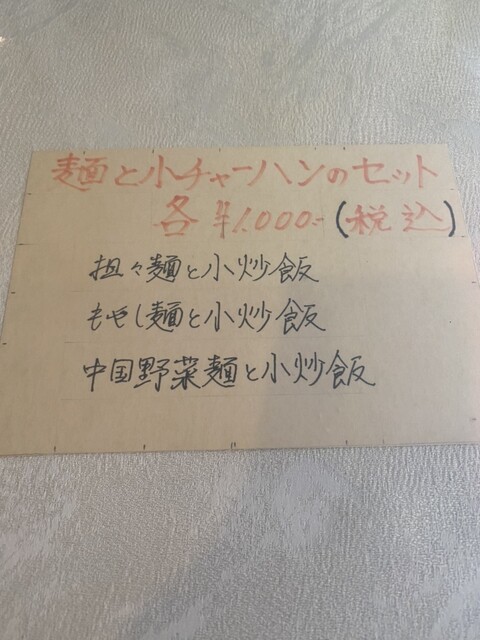 麺と小チャーハンのセット
各¥1.000.-(税込)
担々麺と小炒飯
もやし麺と小炒飯
中国野菜麺と小炒飯